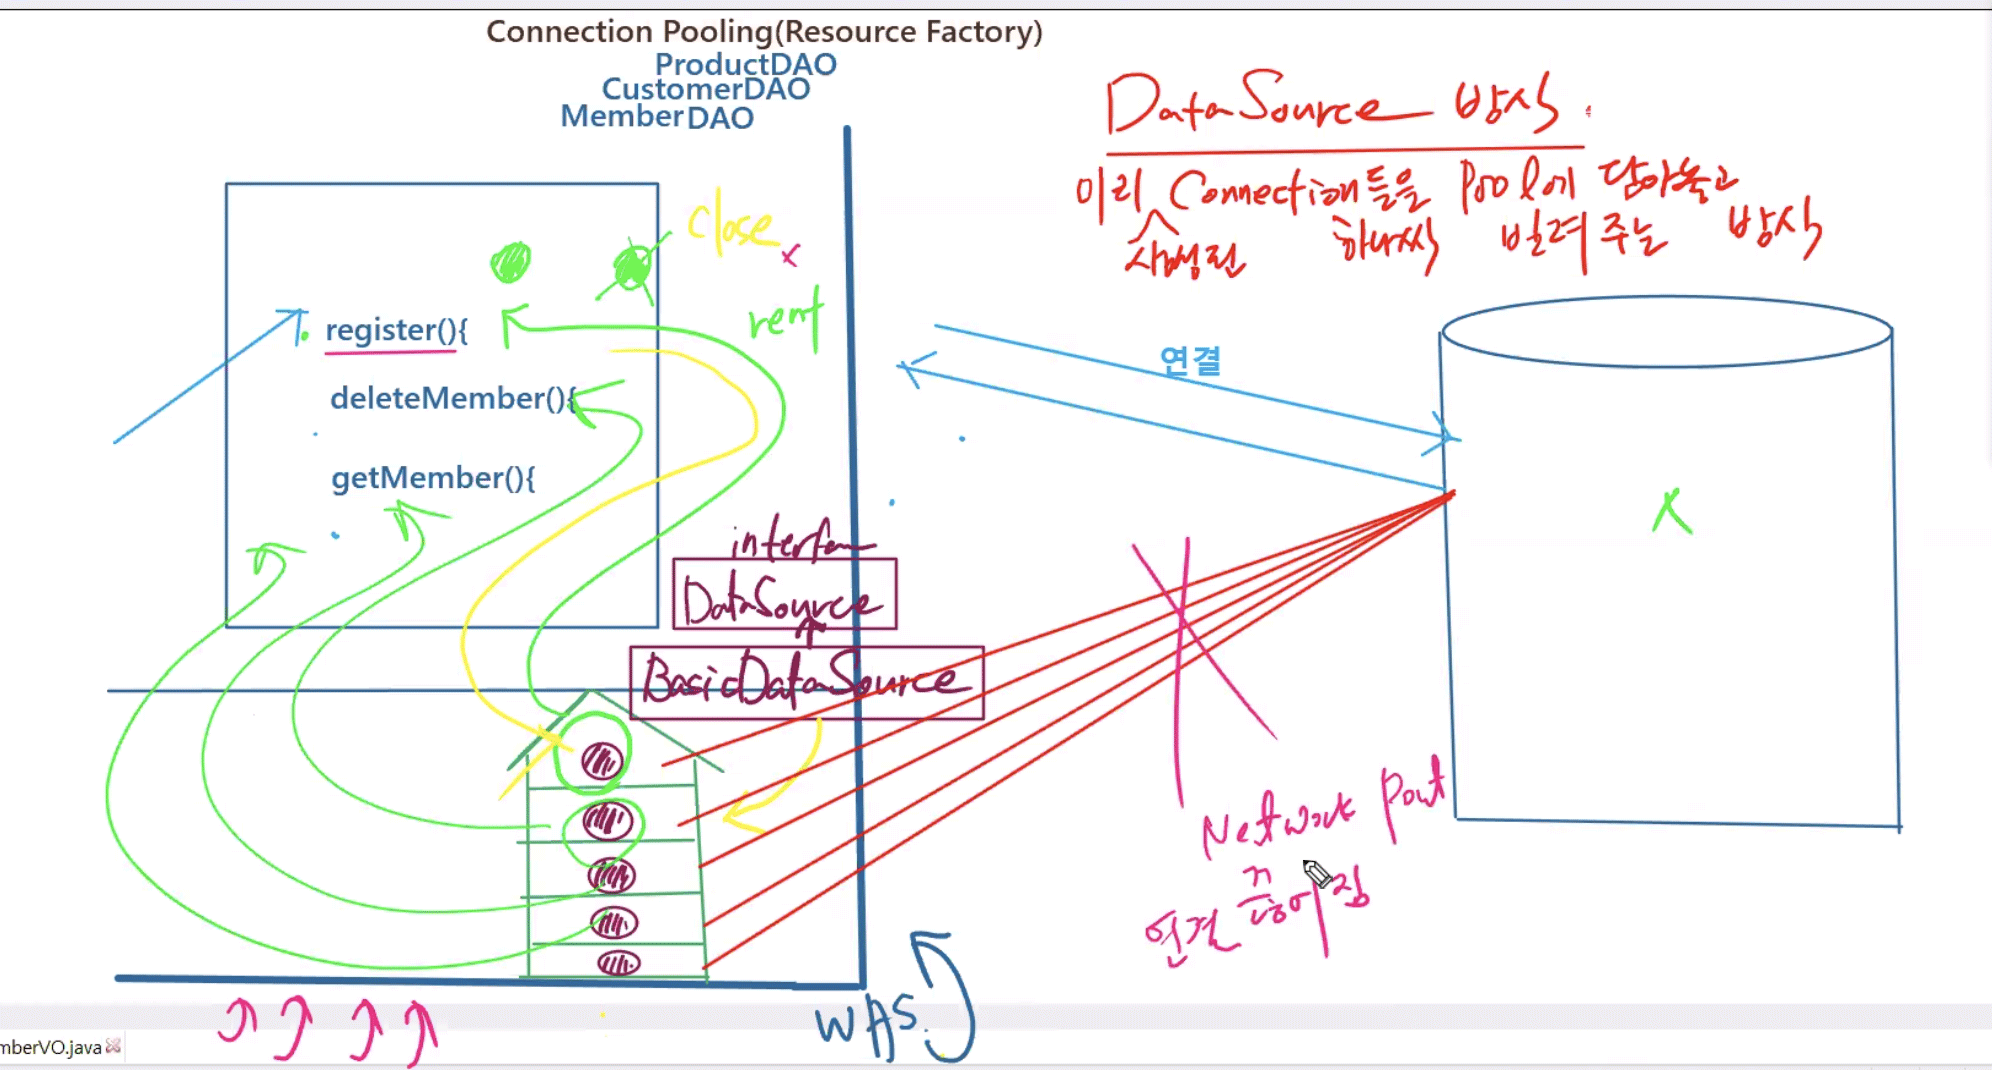 Connection Pooling(Resource Factory)
ProductDAO
CustomerDAO
MemberDAO
DataSource 방식
미리 Connection들을 Pool에 담아놓고
생성된 하나씩 빌려주는 방식
close
x
rent
register(){
deleteMember(){
getMember(){
연결
x
DataSource
BasicDataSource
Network
연결
WAS
mberVO.java